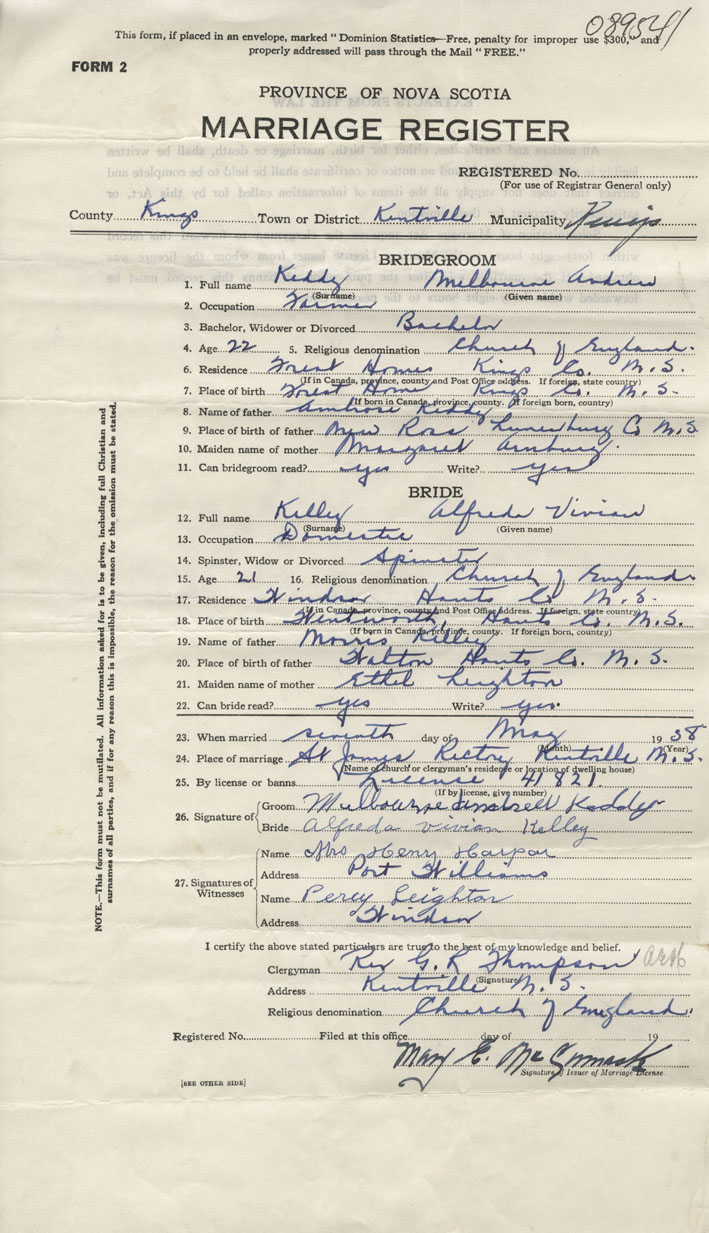 089541
This form, if placed in an envelope, marked "Dominion Statistics—Free, penalty for improper use $300," and
properly addressed will pass through the Mail "FREE."
FORM 2
PROVINCE OF NOVA SCOTIA
MARRIAGE REGISTER
REGISTERED No.
(For use of Registrar General only)
County Kings Town or District Kentville Municipality Kings
BRIDEGROOM
1. Full name Keddy Melbourne Andrew
(Surname) (Given name)
2. Occupation Farmer
3. Bachelor, Widower or Divorced Bachelor
4. Age 22 5. Religious denomination Church of England.
6. Residence Forest Homes Kings Co. N.S.
(If in Canada, province, county and Post Office address. If foreign, state country)
7. Place of birth Forest Home Kings Co. N.S.
(If born in Canada, province, county. If foreign born, country)
8. Name of father Ambrose Keddy
9. Place of birth of father New Ross Lunenburg Co N.S.
10. Maiden name of mother Margaret
11. Can bridegroom read? yes Write? yes
BRIDE
12. Full name Kelley Alfreda Vivian
(Surname) (Given name)
13. Occupation Domestic
14. Spinster, Widow or Divorced Spinster
15. Age 21 16. Religious denomination Church of England.
17. Residence Windsor Hants Co. N.S.
(If in Canada, province, county and Post Office address. If foreign, state country)
18. Place of birth Wentworth, Hants Co. N.S.
(If born in Canada, province, county. If foreign born, country)
19. Name of father Morris Kelley
20. Place of birth of father Walton Hants Co. N.S.
21. Maiden name of mother Ethel Leighton
22. Can bride read? yes Write? yes.
23. When married seventh day of May 1938
(Month) (Year)
24. Place of marriage St James Rectory Kentville N.S.
(Name of church or clergyman's residence or location of dwelling house)
25. By license or banns License 41821.
(If by license, give number)
26. Signature of Groom Melbourne Keddy
Bride Alfreda Vivian Kelley
27. Signatures of Witnesses
Name Mrs Henry Harpar
Address Port Williams
Name Percy Leighton
Address Windsor
I certify the above stated particulars are true to the best of my knowledge and belief.
Clergyman Rev G. R Thompson
(Signature)
Address Kentville N.S.
Religious denomination Church of England.
Registered No. Filed at this office day of 19
Mary E. McCormack
Signature of Issuer of Marriage License.
[SEE OTHER SIDE]
NOTE.—This form must not be mutilated. All information asked for is to be given, including full Christian and
surnames of all parties, and if for any reason this is impossible, the reason for the omission must be stated.